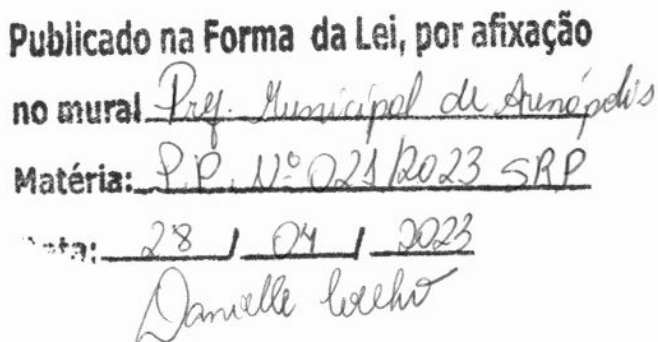 Publicado na Forma da Lei, por afixação
no mural Pref. Municipal de Arenápolis
Matéria: P.P. Nº 021/2023 SRP
Data: 28 / 04 / 2023
Danielle Coelho